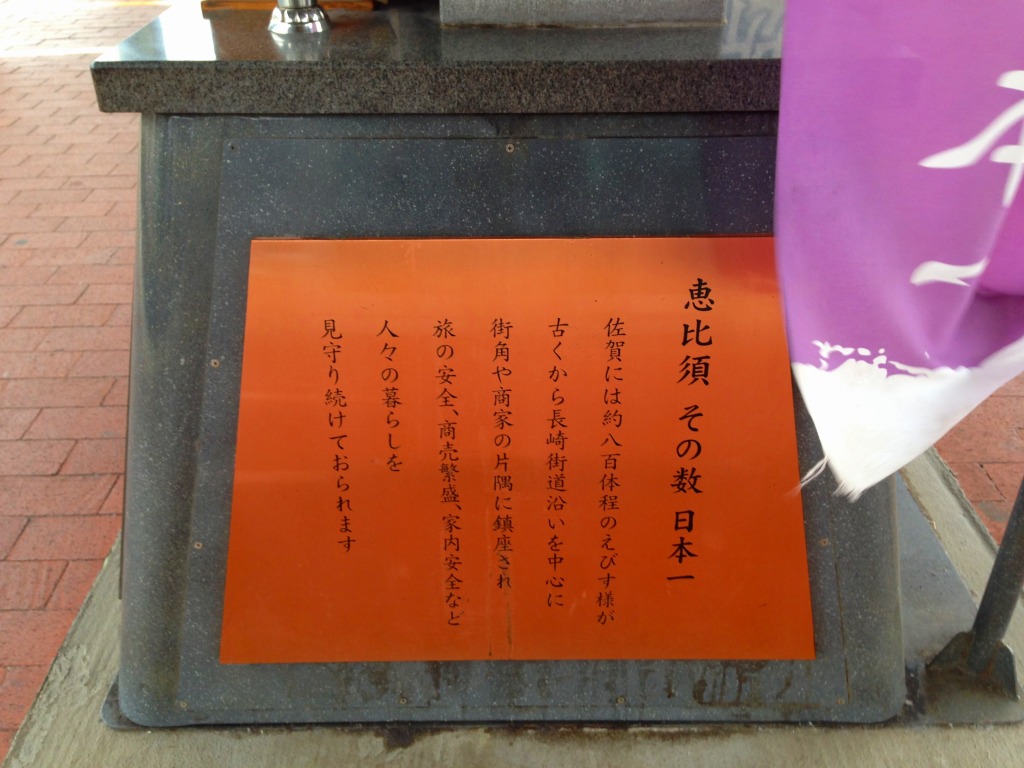 恵比須 その数 日本一
佐賀には約八百体程のえびす様が
古くから長崎街道沿いを中心に
街角や商家の片隅に鎮座され
旅の安全、商売繁盛、家内安全など
人々の暮らしを
見守り続けておられます